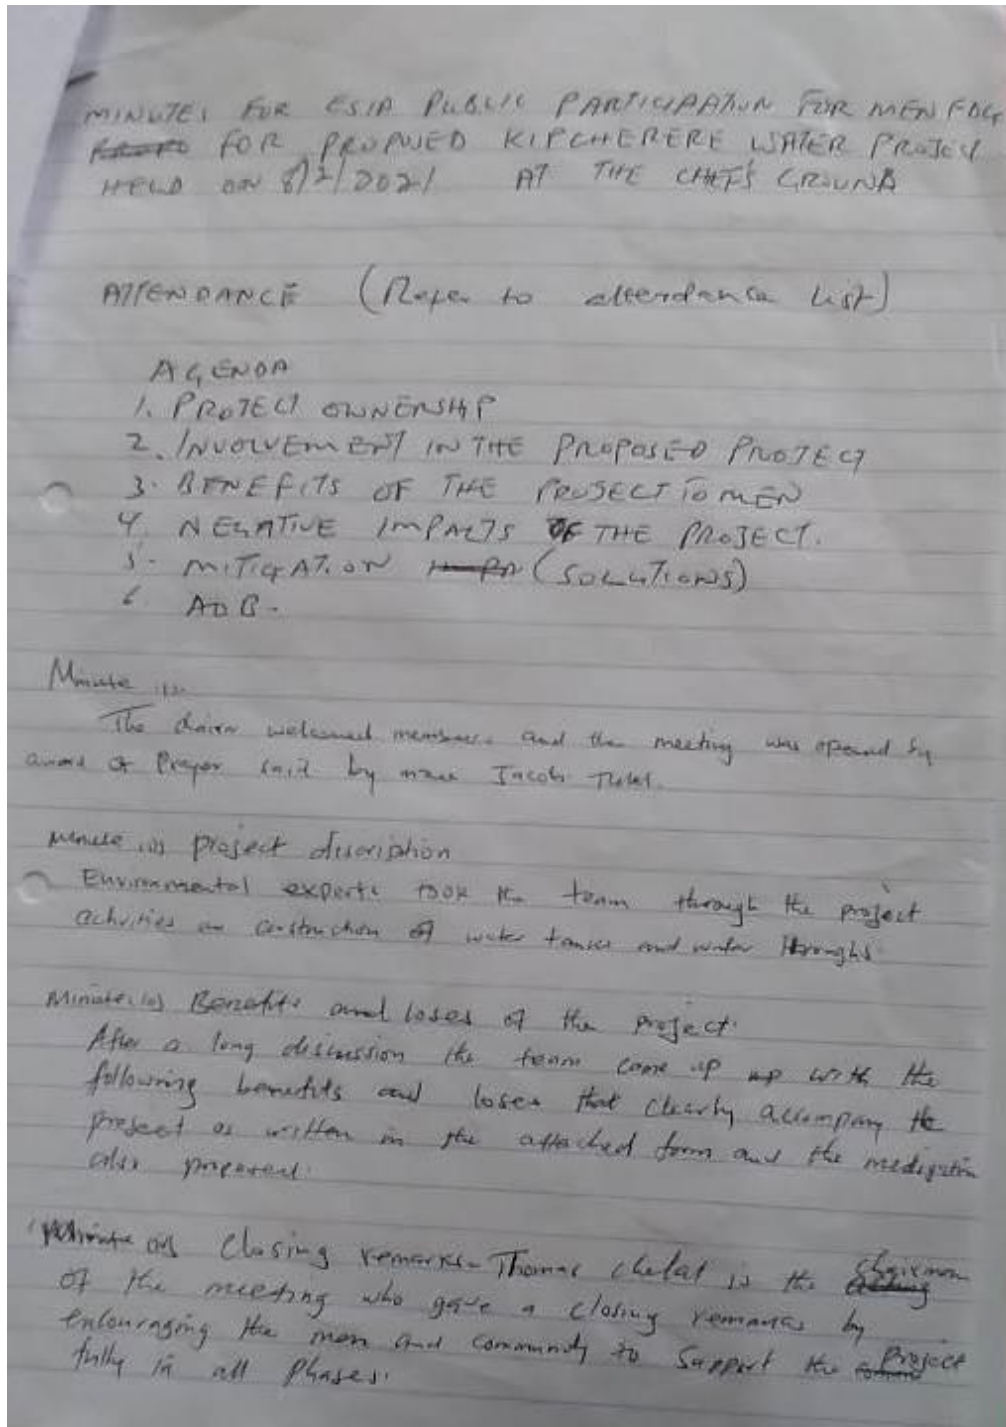 MINUTES FOR ESIA PUBLIC PARTICIPATION FOR MEN FDG
FOR PROPOSED KIPCHERERE WATER PROJECT
HELD ON 8/2/2021 AT THE CHIEF'S GROUND
ATTENDANCE (Refer to attendance list)
AGENDA
1. PROJECT OWNERSHIP
2. INVOLVEMENT IN THE PROPOSED PROJECT
3. BENEFITS OF THE PROJECT TO MEN
4. NEGATIVE IMPACTS OF THE PROJECT.
5. MITIGATION (SOLUTIONS)
6. AOB.
Minute
The welcomed members and the meeting was opened by
a word of Prayer said by Jacob
Minute project discription
Environmental experts took the team through the project
activities on construction of water tanks and water throughs.
Minute Benefits and loses of the project.
After a long discussion the team came up up with the
following benefits and loses that clearly accompany the
project as written in the attached form and the
also
Minute closing remarks. Thomas is the chairman
of the meeting who gave a closing remarks by
encouraging the men and community to support the project
fully in all phases.